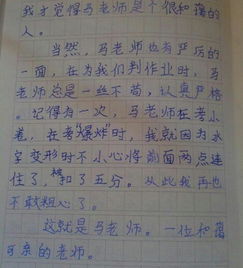 我才觉得马老师是个很和蔼的
人。
当然，马老师也有严厉的
一面，在为我们判作业时，马
老师总是一丝不苟，认真严格
。记得有一次，马老师在考小
卷，在考爆炸时，我就因为火
字变形时不小心将前面两点连
住了，被扣了五分。从此我再也
不敢粗心了。
这就是马老师。一位和蔼
可亲的老师。